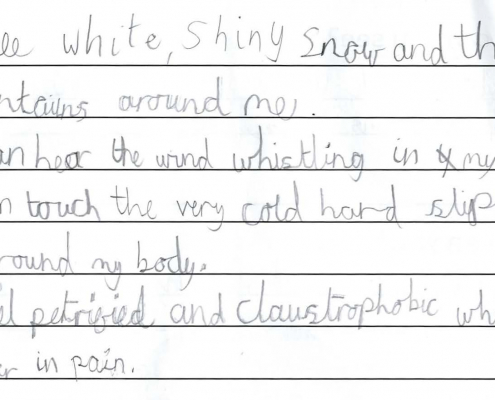 ee white, shiny snow and th
ntains around me.
an hear the wind whistling in my
n touch the very cold hard slip
round my body.
el petrified and claustrophobic wh
er in pain.